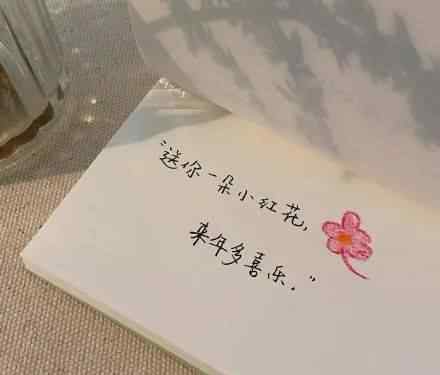 “送你一朵小红花，
来年多喜乐．”